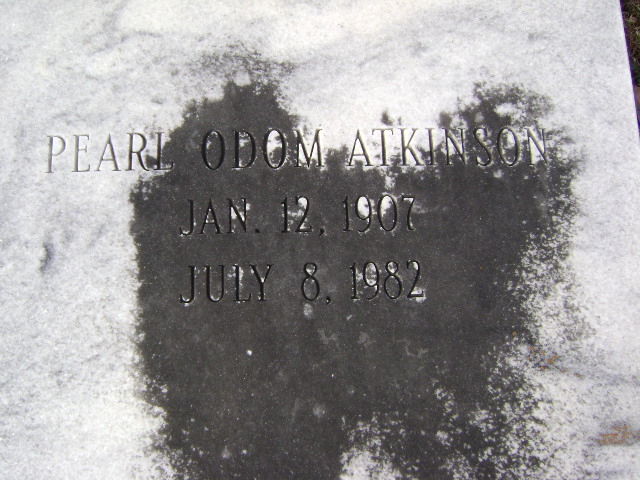 PEARL ODOM ATKINSON
JAN. 12, 1907
JULY 8, 1982